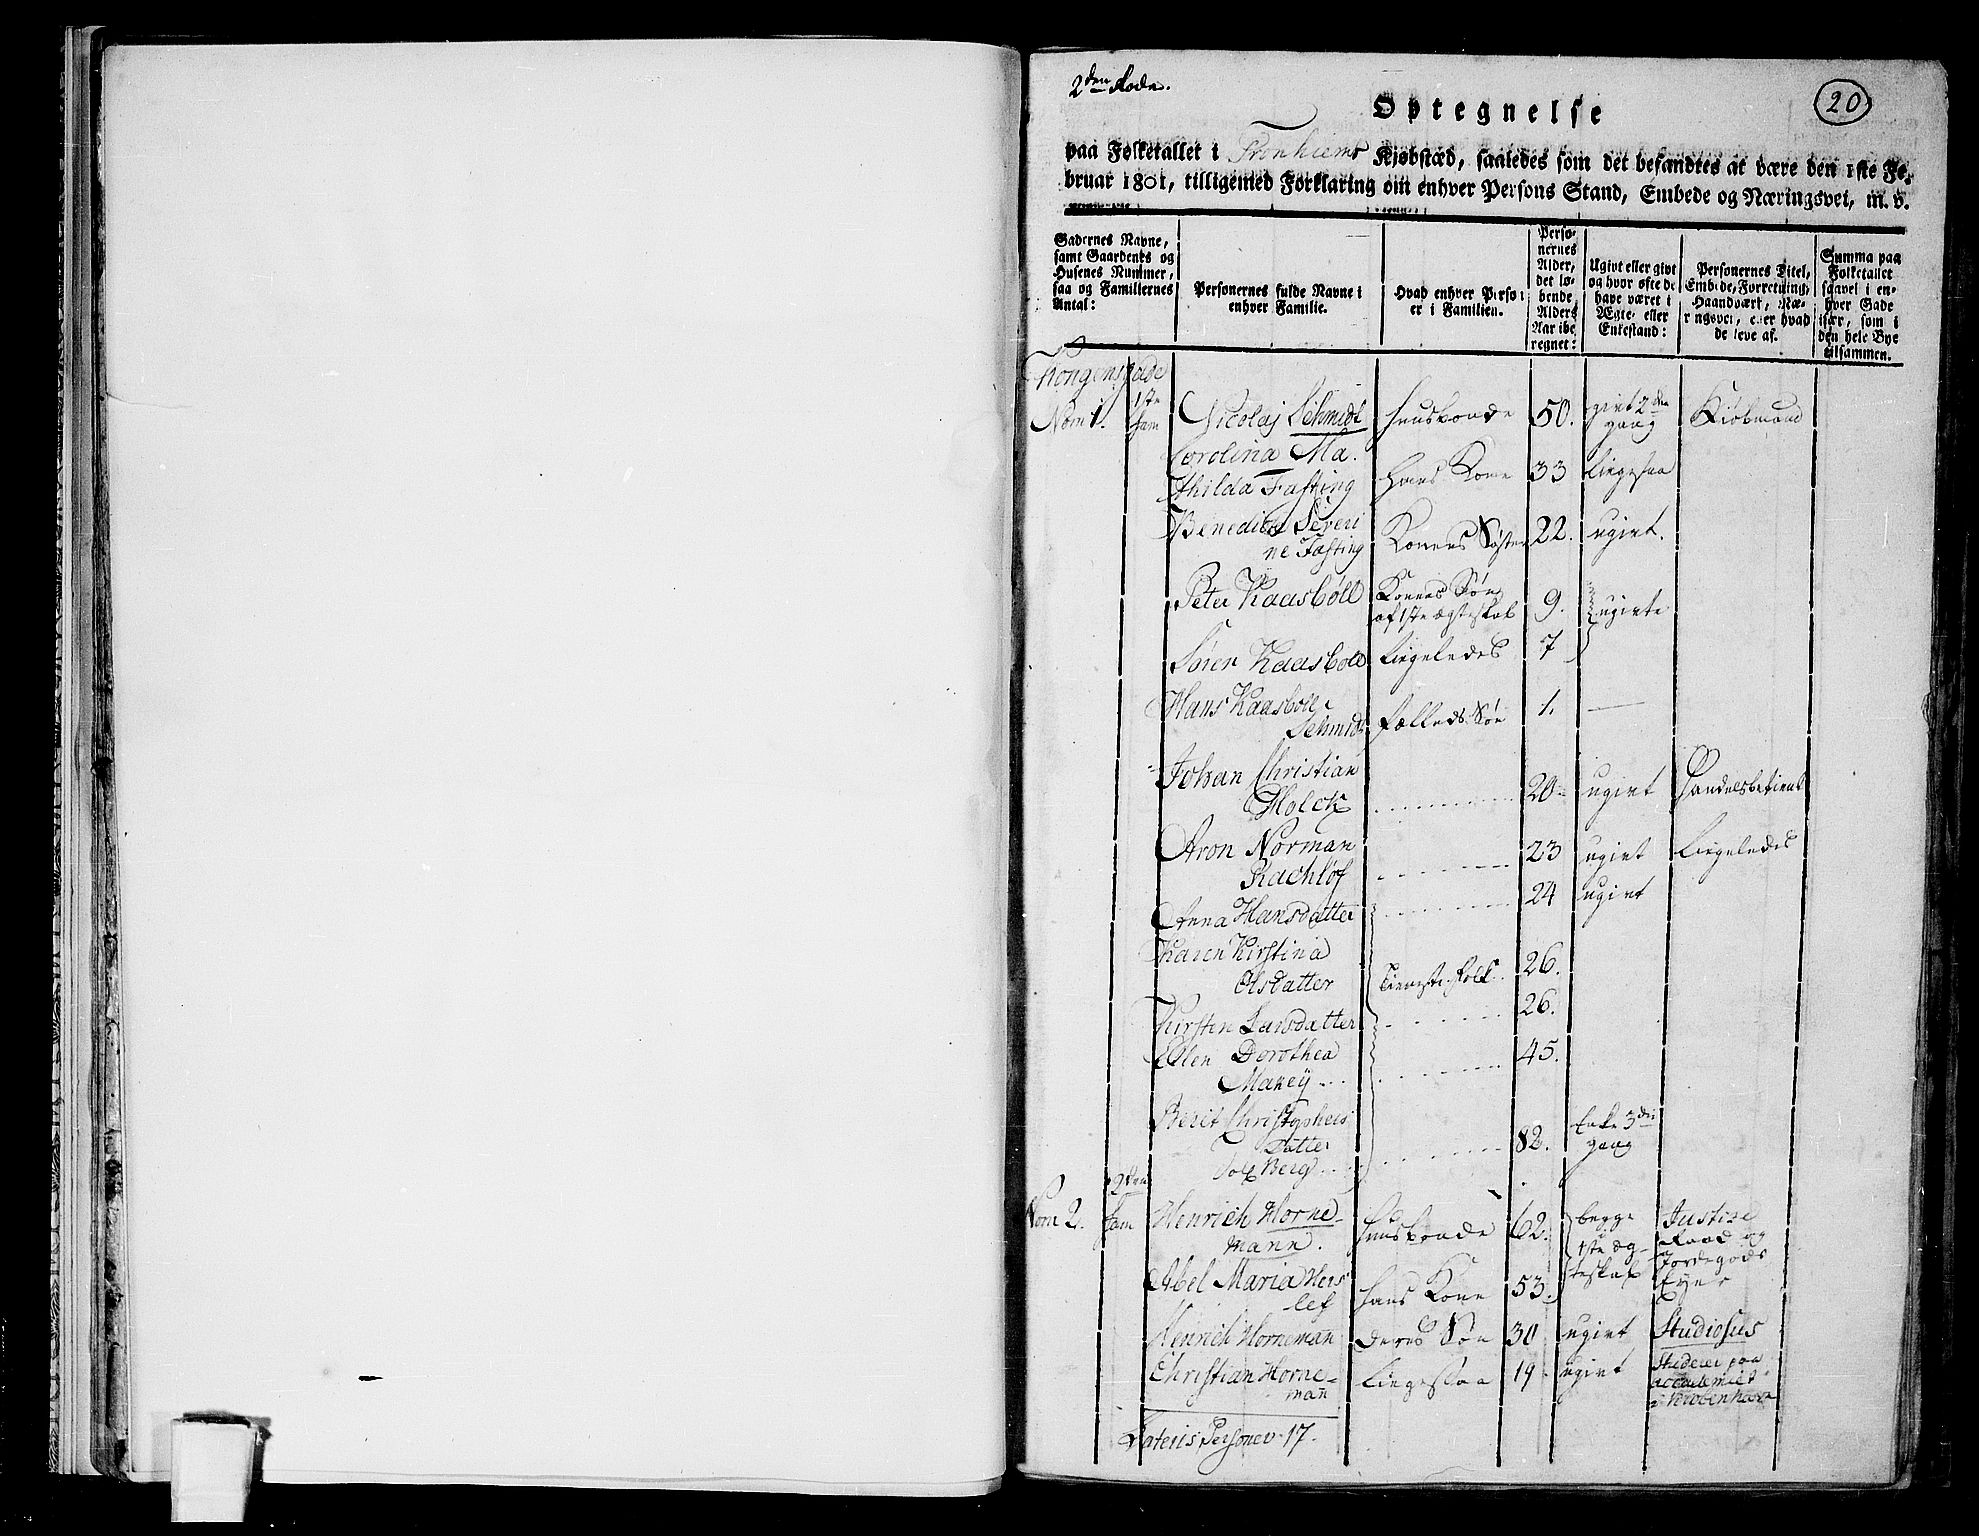 2den Rode.
20
Optegnelse
paa Folketallet i Tronhiems Kjøbstæd, saaledes som det befandtes at være den 1ste Fe-
bruar 1801, tilligemed Forklaring om enhver Persons Stand, Embede og Næringsvei, m. v.
Gadernes Navne,
samt Gaardenes og
Husenes Nummer,
saa og Familiernes
Antal:
Personernes fulde Navne i
enhver Familie.
Hvad enhver Person
er i Familien.
Perso-
nernes
Alder,
det lø-
bende
Alders
Aar ibe-
regnet:
Ugivt eller givt
og hvor ofte de
have været i
Ægte- eller
Enkestand:
Personernes Titel,
Embede, Forretning,
Haandværk, Næ-
ringsvei, eller hvad
de leve af.
Summa paa
Folketallet
saavel i en-
hver Gade
især, som i
den hele Bye
tilsammen.
Kongensgade
Nom 1. 1ste Fam Nicolaj Schmidt Huusbonde 50. givt 2den gang Kiøbmand
Carolina Ma.
thilda Fasting hans Kone 33 ligesaa
Benedicta Severi
ne Fasting Konens Søster 22. ugivt.
Peter Kaasbøll Konens Søn af 1ste ægteskab 9. ugivte
Søren Kaasbøll ligeledes 7
Hans Kaasbøll
Schmidt fælleds Søn 1. —
Johan Christian
Molck 20 ugivt Handelsbetient
Aron Norman
Rachløf 23 ugivt ligeledes
Anna Hansdatter 24 ugivt
Karen Kirstina
Olsdatter Tieneste folk 26.
Kirsten Larsdatter 26.
Ellen Dorothea
Marey 45.
Berit Christophers
Datter
Berg 82. Enke 3die gang
Nom 2. 2den Fam Henrich Horne-
mann. Huusbonde 62. begge 1ste æg-teskab Justice Raad og Jordegods Eyer
Abel Maria Hers
lef hans Kone 53.
Henrich Horneman deres Søn 30 ugivt Studiosus
Christian Horne-
man ligesaa 19 ugivt Studerer paa accademiet i Kiøbenhavn
Lateris Personer 17.